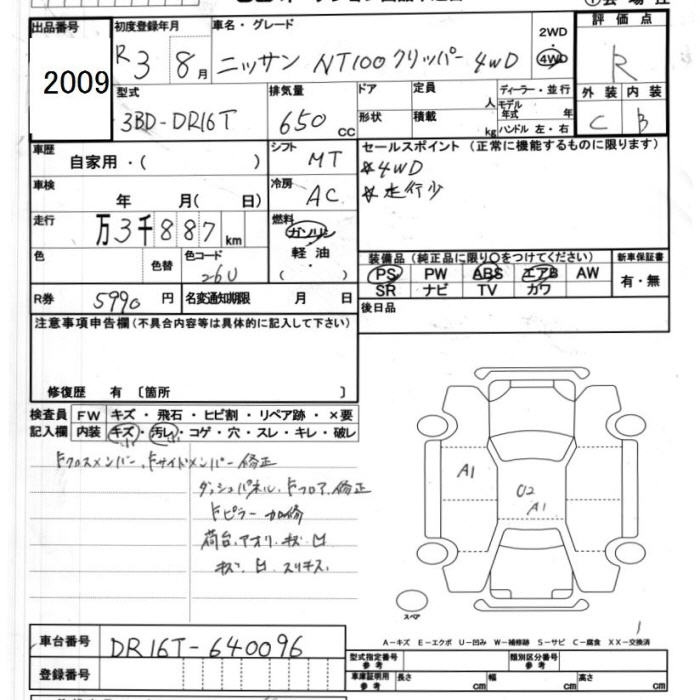 出品番号 初度登録年月 車名・グレード 2WD 評価点
2009 R3 8月 ニッサン NT100クリッパー 4WD 4WD R
型式 排気量 ドア 定員 人 ディーラー・並行 外装 内装
3BD-DR16T 650 cc 形状 積載 kg モデル年式 年 ハンドル 左・右 C B
車歴 自家用・( ) シフト MT セールスポイント (正常に機能するものに限ります)
車検 年 月( 日) 冷房 AC ☆4WD
☆走行少
走行 万3千887km 燃料 ガソリン
軽油
・( )
色 色替 色コード 26U
装備品 (純正品に限り○をつけてください) 新車保証書
PS PW ABS エアB AW 有・無
SR ナビ TV カワ
R券 5990 円 名変通知期限 月 日 後日品
注意事項申告欄(不具合内容等は具体的に記入して下さい)
修復歴 有 〔箇所 〕
検査員 FW キズ・飛石・ヒビ割・リペア跡・×要
記入欄 内装 キズ・汚レ・コゲ・穴・スレ・キレ・破レ
Fクロスメンバー、Fサイドメンバー修正
ダッシュパネル、Fフロア、修正
Fピラー 加修
荷台、アオリ、キズ 凹
キズ、凹 スリキズ
A1
U2
A1
スペア
1
A-キズ E-エクボ U-凹み W-補修跡 S-サビ C-腐食 XX-交換済
車台番号 DR16T-640096
型式指定番号 参考 類別区分番号 参考
登録番号 車庫証明用 参考 長さ cm 幅 cm 高さ cm